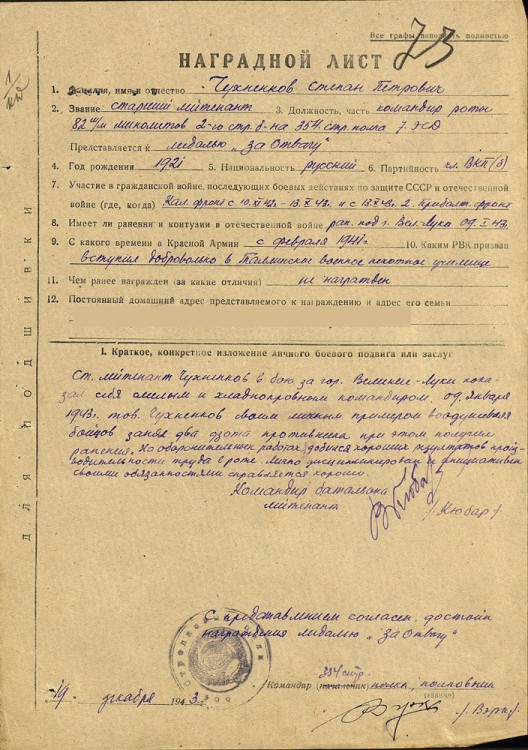 Все графы заполнять полностью
73
НАГРАДНОЙ ЛИСТ
1. Фамилия, имя и отчество Чухненков Степан Петрович
2. Звание старший лейтенант 3. Должность, часть командир роты
82 м/м минометов 2-го стр. б-на 354 стр. полка 7. ЭСД
Представляется к медалью „за Отвагу"
4. Год рождения 1921 5. Национальность русский 6. Партийность чл. ВКП(б)
7. Участие в гражданской войне, последующих боевых действиях по защите СССР и отечественной
войне (где, когда) Кал. фронт с 10.XI 42г. - 13.X 43. и с 13.X 43. 2. Прибалт. фронт
8. Имеет ли ранения и контузии в отечественной войне ран. под г. Вел-Луки 09.I.43.
9. С какого времени в Красной Армии с февраля 1941г. 10. Каким РВК призван
вступил добровольно в Таллинское военное пехотное училище
11. Чем ранее награжден (за какие отличия) не награжден
12. Постоянный домашний адрес представляемого к награждению и адрес его семьи
I. Краткое, конкретное изложение личного боевого подвига или заслуг
Ст. лейтенант Чухненков в бою за гор. Великие-Луки пока-
зал себя смелым и хладнокровным командиром. 09. января
1943г. тов. Чухненков своим личным примером воодушевляя
бойцов занял два дзота противника при этом получил
ранения. На оборонительных работах добился хороших результатов произ-
водительности труда в роте. Лично дисциплинирован и инициативен
своими обязанностями справляется хорошо.
Командир батальона
лейтенант /Кюбар/
С представлением согласен, достоин
награждения медалью „за Отвагу"
354 стр.
Командир (начальник) полка, полковник
(звание)
19. декабря 1943 г.
ДЛЯ ПОДШИВКИ